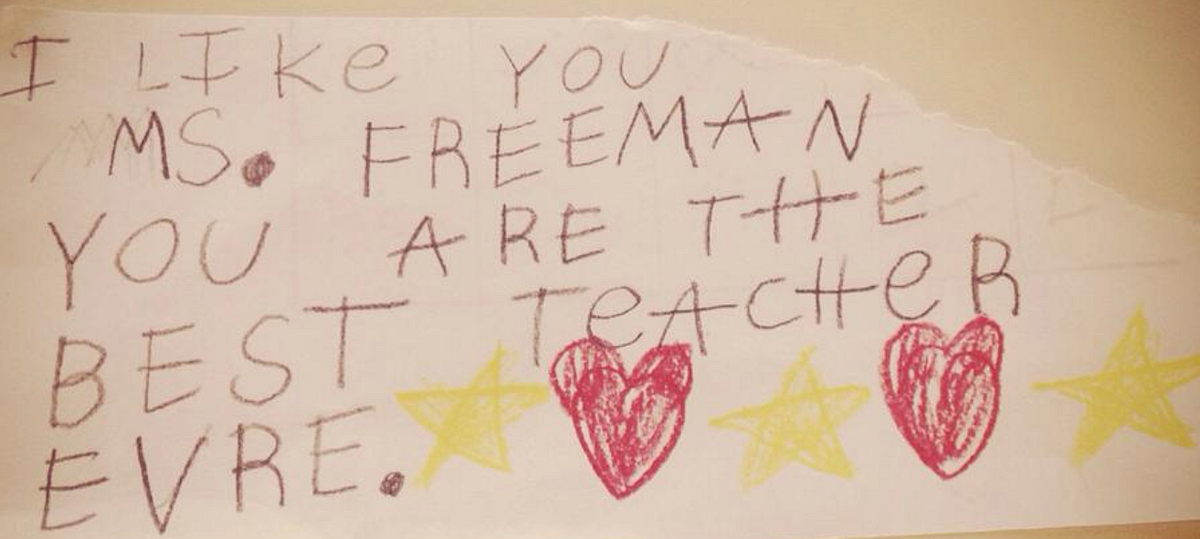 I LIKe YOU
MS. FREEMAN
YOU ARE THE
BEST TeACHeR
EVRE.